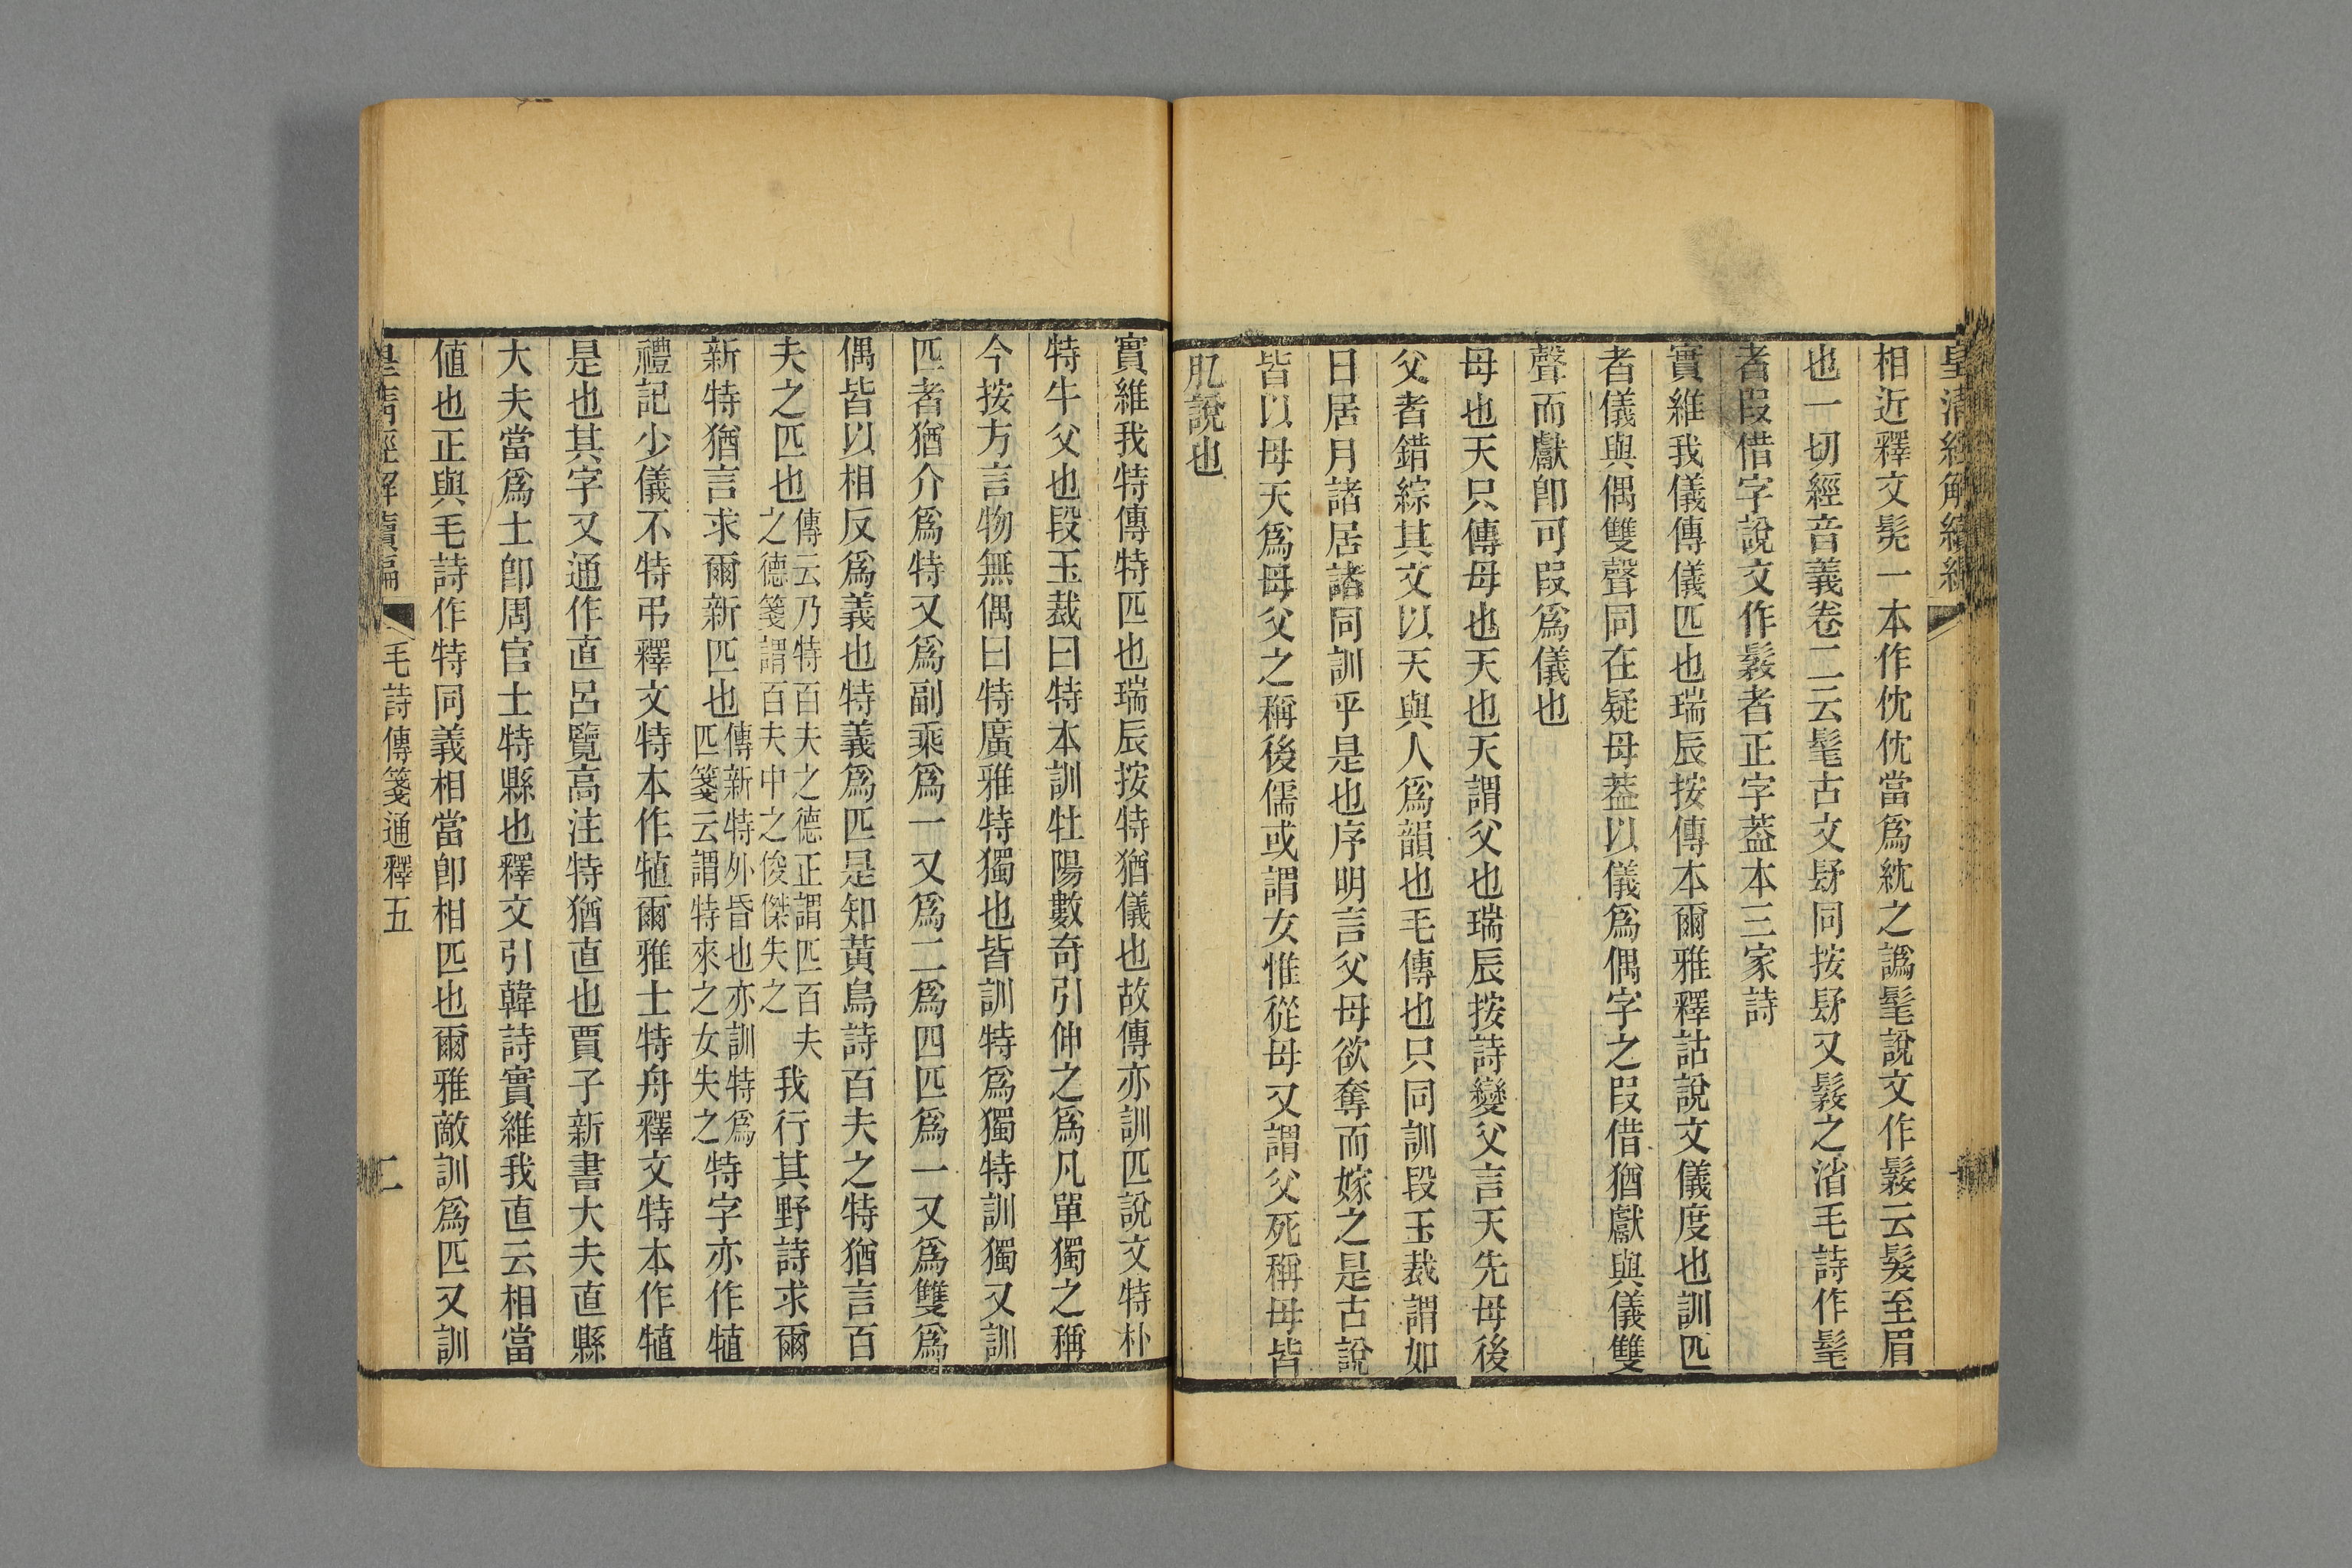 皇清經解續編
相近釋文髧一本作忱忱當爲紞之譌髦說文作髳云髮至眉
也一切經音義卷二云髦古文髳同按髳又髳之渻毛詩作髦
者叚借字說文作髳者正字葢本三家詩
實維我儀傳儀匹也瑞辰按傳本爾雅釋詁說文儀度也訓匹
者儀與偶雙聲同在疑母葢以儀爲偶字之叚借猶獻與儀雙
聲而獻卽可叚爲儀也
母也天只傳母也天也天謂父也瑞辰按詩變父言天先母後
父者錯綜其文以天與人爲韻也毛傳也只同訓段玉裁謂如
日居月諸居諸同訓乎是也序明言父母欲奪而嫁之是古說
皆以母天爲母父之稱後儒或謂女惟從母又謂父死稱母皆
肊說也
實維我特傳特匹也瑞辰按特猶儀也故傳亦訓匹說文特朴
特牛父也段玉裁曰特本訓牡陽數奇引伸之爲凡單獨之稱
今按方言物無偶曰特廣雅特獨也皆訓特爲獨特訓獨又訓
匹者猶介爲特又爲副乘爲一又爲二爲四匹爲一又爲雙爲
偶皆以相反爲義也特義爲匹是知黃鳥詩百夫之特猶言百
夫之匹也傳云乃特百夫之德正謂匹百夫之德箋謂百夫中之俊傑失之我行其野詩求爾
新特猶言求爾新匹也傳新特外昏也亦訓特爲匹箋云謂特來之女失之特字亦作犆
禮記少儀不特弔釋文特本作犆爾雅士特舟釋文特本作犆
是也其字又通作直呂覽高注特猶直也賈子新書大夫直縣
大夫當爲士卽周官士特縣也釋文引韓詩實維我直云相當
値也正與毛詩作特同義相當卽相匹也爾雅敵訓爲匹又訓
皇清經解續編 毛詩傳箋通釋五 二